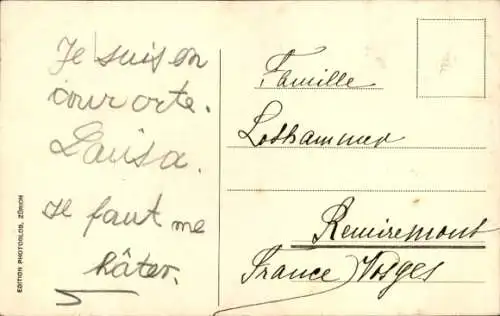 Je suis en
courorte.
Louisa.
Il faut me
hâter.
Famille
Lothammer
Remiremont
France (Vosges
EDITION PHOTOGLOB, ZÜRICH